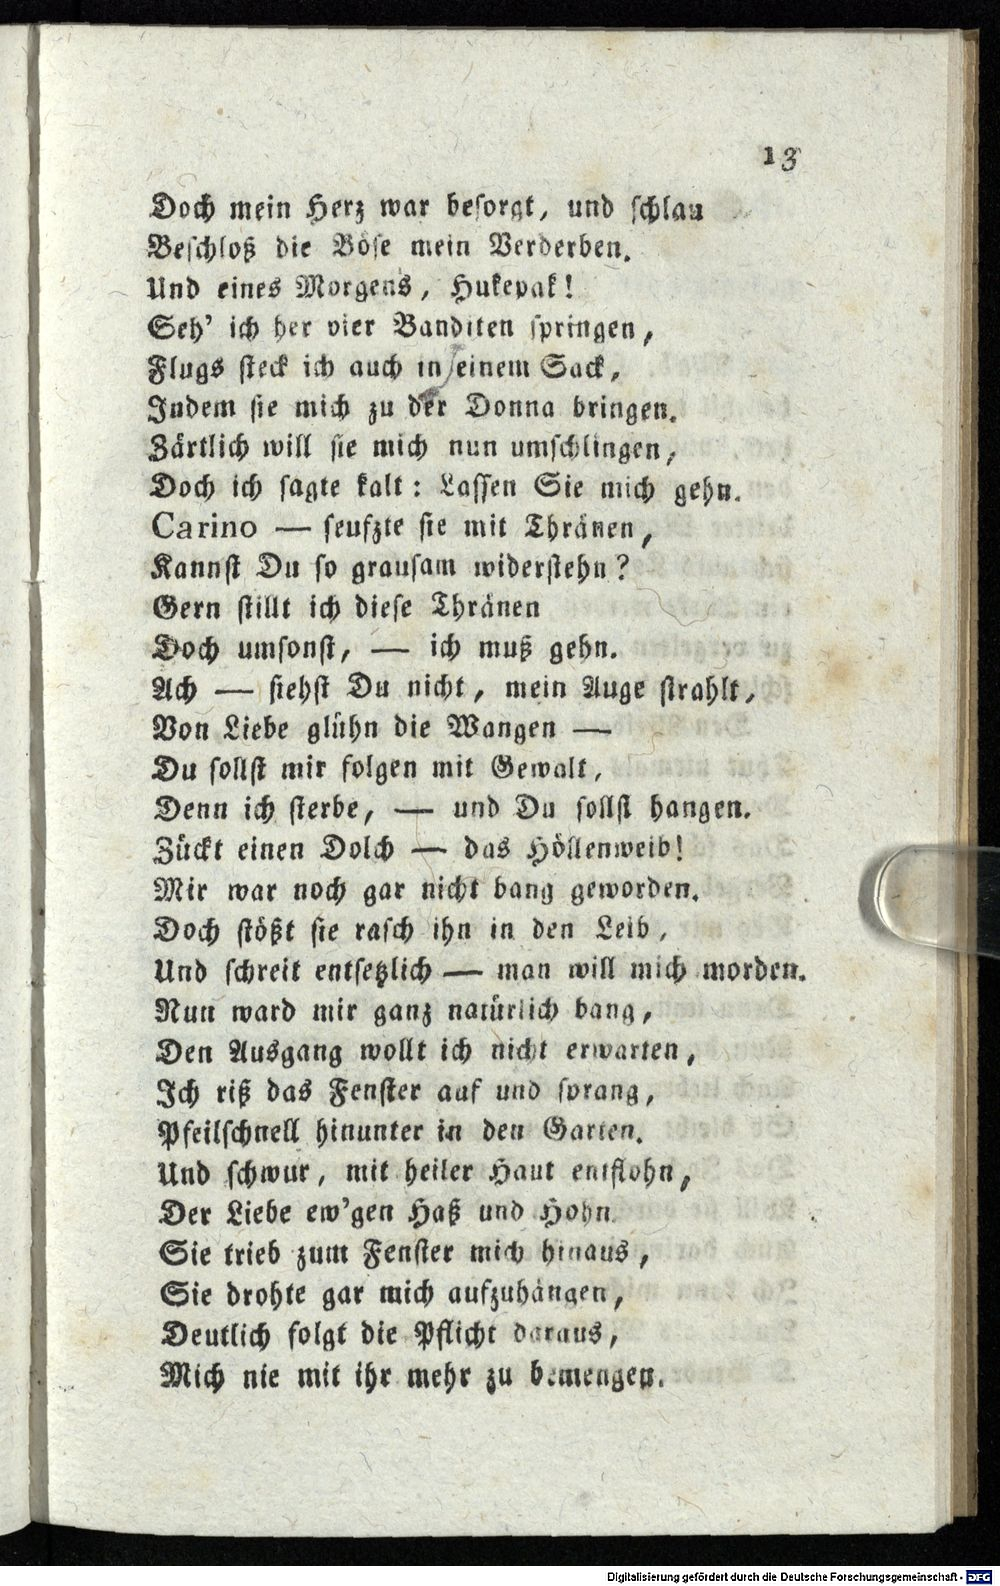 13
Doch mein Herz war besorgt, und schlau
Beschloß die Böse mein Verderben.
Und eines Morgens, Hukepak!
Seh' ich her vier Banditen springen,
Flugs steck ich auch in einem Sack,
Indem sie mich zu der Donna bringen.
Zärtlich will sie mich nun umschlingen,
Doch ich sagte kalt: Lassen Sie mich gehn.
Carino — seufzte sie mit Thränen,
Kannst Du so grausam widerstehn?
Gern stillt ich diese Thränen
Doch umsonst, — ich muß gehn.
Ach — siehst Du nicht, mein Auge strahlt,
Von Liebe glühn die Wangen —
Du sollst mir folgen mit Gewalt,
Denn ich sterbe, — und Du sollst hangen.
Zückt einen Dolch — das Höllenweib!
Mir war noch gar nicht bang geworden.
Doch stößt sie rasch ihn in den Leib,
Und schreit entsetzlich — man will mich morden.
Nun ward mir ganz natürlich bang,
Den Ausgang wollt ich nicht erwarten,
Ich riß das Fenster auf und sprang,
Pfeilschnell hinunter in den Garten.
Und schwur, mit heiler Haut entflohn,
Der Liebe ew'gen Haß und Hohn.
Sie trieb zum Fenster mich hinaus,
Sie drohte gar mich aufzuhängen,
Deutlich folgt die Pflicht daraus,
Mich nie mit ihr mehr zu bemengen.
Digitalisierung gefördert durch die Deutsche Forschungsgemeinschaft - DFG